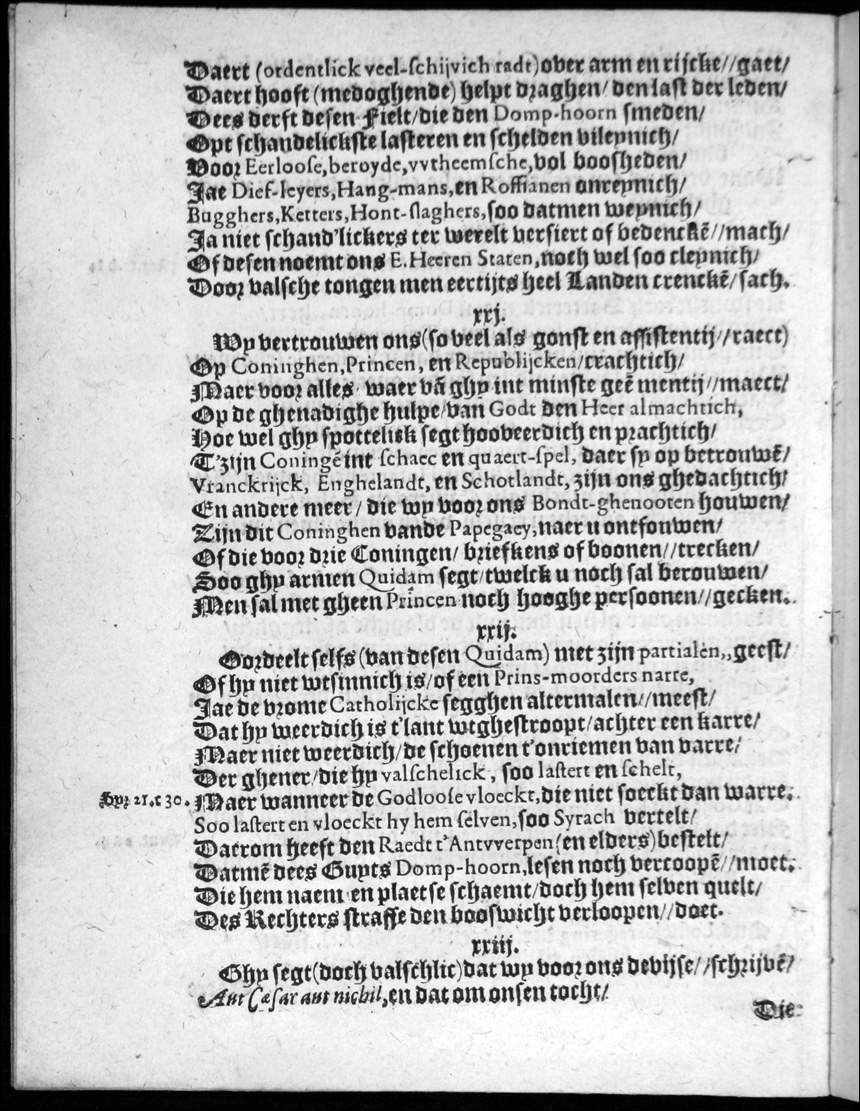 Daert (ordentlick veel-schijvich radt) over arm en rijcke//gaet/
Daert hooft (medoghende) helpt draghen/ den last der leden/
Dees derft desen Fielt/die den Domp-hoorn smeden/
Opt schandelickste lasteren en schelden vileynich/
Voor Eerloose,beroyde,vvtheemsche,vol boosheden/
Jae Dief-leyers,Hang-mans,en Roffianen onreynich/
Bugghers,Ketters,Hont-slaghers,soo datmen weynich/
Ja niet schand'lickers ter werelt versiert of bedenckē//mach/
Of desen noemt ons E.Heeren Staten,noch wel soo cleynich/
Door valsche tongen men eertijts heel Landen crenckē/sach.
xxj.
Wy vertrouwen ons(so veel als gonst en assistentij//raect)
Op Coninghen,Princen, en Republijcken/crachtich/
Maer voor alles/ waer vā ghy int minste geē mentij//maect/
Op de ghenadighe hulpe/van Godt den Heer almachtich,
Hoe wel ghy spottelisk segt hooveerdich en prachtich/
T'zijn Coningē int schaec en quaert-spel, daer sy op betrouwē/
Vranckrijck, Enghelandt, en Schotlandt, zijn ons ghedachtich/
En andere meer/ die wy voor ons Bondt-ghenooten houwen/
Zijn dit Coninghen vande Papegaey,naer u ontfouwen/
Of die voor drie Coningen/ briefkens of boonen//trecken/
Soo ghy armen Quidam segt/twelck u noch sal berouwen/
Men sal met gheen Princen noch hooghe persoonen//gecken.
xxij.
Oordeelt selfs (van desen Quidam) met zijn partialen,,geest/
Of hy niet wtsinnich is/of een Prins-moorders narre,
Jae de vrome Catholijcke segghen altermalen//meest/
Dat hy weerdich is t'lant wtghestroopt/achter een karre/
Maer niet weerdich/de schoenen t'onriemen van varre/
Der ghener/die hy valschelick, soo lastert en schelt,
Syr. 21. c 30. Maer wanneer de Godloose vloeckt,die niet soeckt dan warre.
Soo lastert en vloeckt hy hem selven,soo Syrach vertelt/
Daerom heeft den Raedt t'Antvverpen(en elders)bestelt/
Datmē dees Guyts Domp-hoorn,lesen noch vercoopē//moet.
Die hem naem en plaetse schaemt/doch hem selven quelt/
Des Rechters straffe den booswicht verloopen//doet.
xxiij.
Ghy segt(doch valschlic)dat wy voor ons devijse//schrijvē/
Aut Cæsar aut nichil,en dat om onsen tocht/
Die